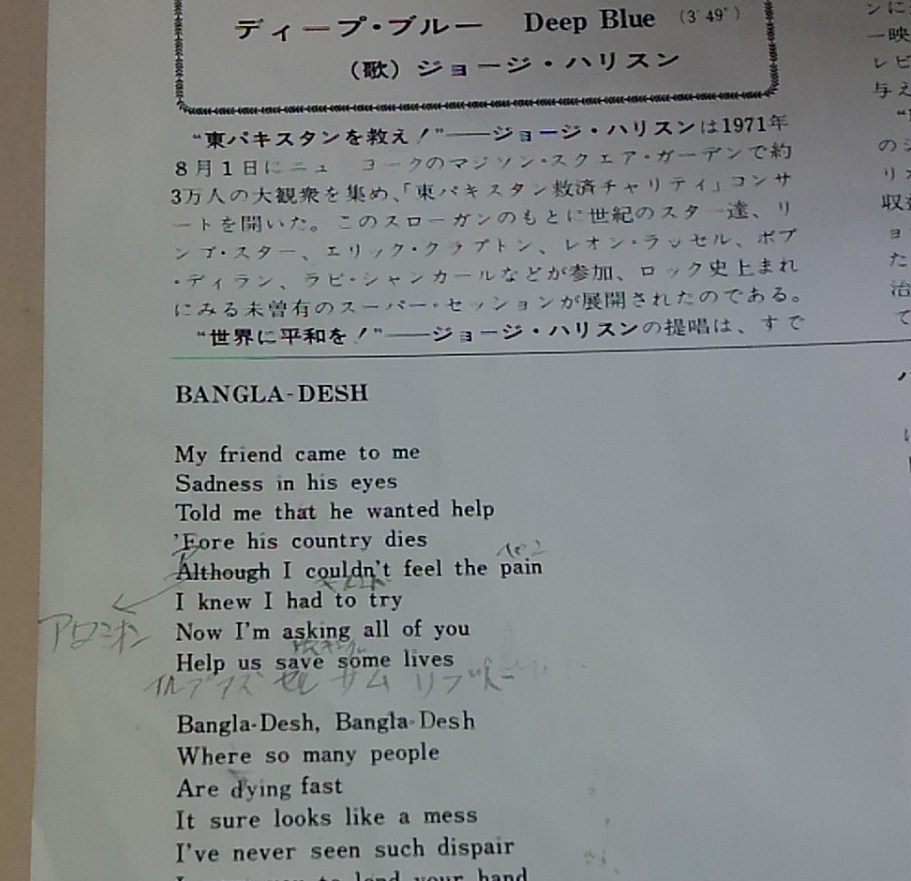 ディープ・ブルー Deep Blue (3′49″)
(歌)ジョージ・ハリスン
“東パキスタンを救え!”——ジョージ・ハリスンは1971年
8月1日にニューヨークのマジソン・スクエア・ガーデンで約
3万人の大観衆を集め、「東パキスタン救済チャリティ」コンサ
ートを開いた。このスローガンのもとに世紀のスター達、リ
ンゴ・スター、エリック・クラプトン、レオン・ラッセル、ボブ
・ディラン、ラビ・シャンカールなどが参加、ロック史上まれ
にみる未曾有のスーパー・セッションが展開されたのである。
“世界に平和を!”——ジョージ・ハリスンの提唱は、すで
ンに
一映
レビ
与え
のジ
リオ
収益
ョ
た
治
て
BANGLA-DESH
My friend came to me
Sadness in his eyes
Told me that he wanted help
'Fore his country dies
Although I couldn't feel the pain
I knew I had to try
Now I'm asking all of you
Help us save some lives
サム
Bangla-Desh, Bangla-Desh
Where so many people
Are dying fast
It sure looks like a mess
I've never seen such dispair
to lend your hand